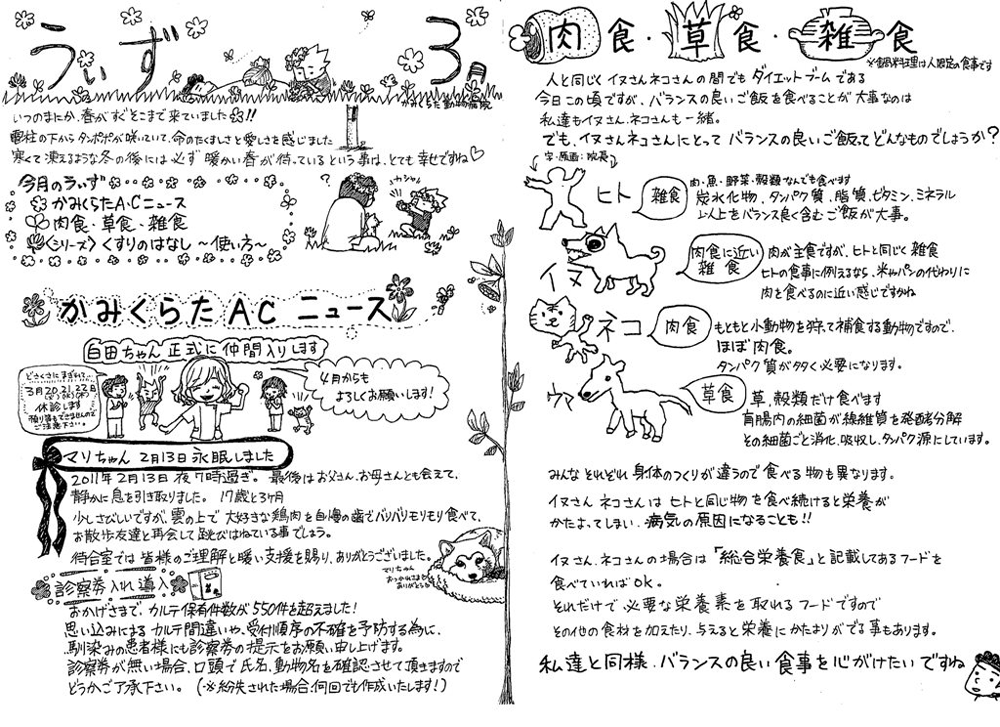 うぃず 3月
かみくらた動物病院
いつのまにか、春がすぐそこまで来ていました!!
電柱の下からタンポポが咲いていて、命のたくましさと愛しさを感じました
寒くて凍えるような冬の後には必ず暖かい春が待っているという事は、とても幸せですね♡
今月のうぃず
かみくらたA・Cニュース
肉食・草食・雑食
〈シリーズ〉くすりのはなし〜使い方〜
?
カシャ
かみくらた A C ニュース
白田ちゃん 正式に仲間入りします
どさくさにまぎれて…
3月20、21、22日
(日)(祝)(火)
休診します
ご注意下さい。
4月からも
よろしくお願いします!
マリちゃん 2月13日 永眠しました
2011年2月13日 夜7時過ぎ。 最後はお父さん、お母さんとも会えて、
静かに息を引き取りました。 17歳と3ヶ月
少しさびしいですが、雲の上で 大好きな鶏肉を自慢の歯でバリバリモリモリ食べて、
お散歩友達と再会して跳びはねている事でしょう。
待合室では皆様のご理解と暖い支援を賜り、ありがとうございました。
マリちゃん
おつかれさまでした
ありがとう
診察券入れ導入
おかげさまで、カルテ保有件数が550件を超えました!
思い込みによるカルテ間違いや、受付順序の不確を予防する為に、
馴染みの患者様にも診察券の提示をお願い申し上げます。
診察券が無い場合、口頭で氏名、動物名を確認させて頂きますので
どうかご了承下さい。 (※紛失された場合、何回でも作成いたします!)
肉食・草食・雑食
※鍋料理は人限定の食事です
人と同じく イヌさんネコさんの間でも ダイエットブームである
今日この頃ですが、バランスの良いご飯を食べることが大事なのは
私達もイヌさん、ネコさんも一緒。
でも、イヌさんネコさんにとって バランスの良いご飯ってどんなものでしょうか?
字・原画:院長
ヒト 雑食
肉・魚・野菜・穀類なんでも食べます
炭水化物、タンパク質、脂質、ビタミン、ミネラル
以上をバランス良く含むご飯が大事。
イヌ
肉食に近い
雑食
肉が主食ですが、ヒトと同じく雑食
ヒトの食事に例えるなら、米やパンの代わりに
肉を食べるのに近い感じですかね
ネコ 肉食
もともと小動物を狩って捕食する動物ですので、
ほぼ肉食。
タンパク質が多く必要になります。
ウマ 草食
草、穀類だけ食べます
盲腸内の細菌が繊維質を発酵分解
その細菌ごと消化、吸収し、タンパク源にしています。
みんなそれぞれ 身体のつくりが違うので食べる物も異なります。
イヌさん ネコさんは ヒトと同じ物を食べ続けると栄養が
かたよってしまい、病気の原因になることも!!
イヌさん、ネコさんの場合は「総合栄養食」と記載してあるフードを
食べていればOK。
それだけで必要な栄養素を取れるフードですので
その他の食材を加えたり、与えると栄養にかたよりがでる事もあります。
私達と同様、バランスの良い食事を心がけたいですね